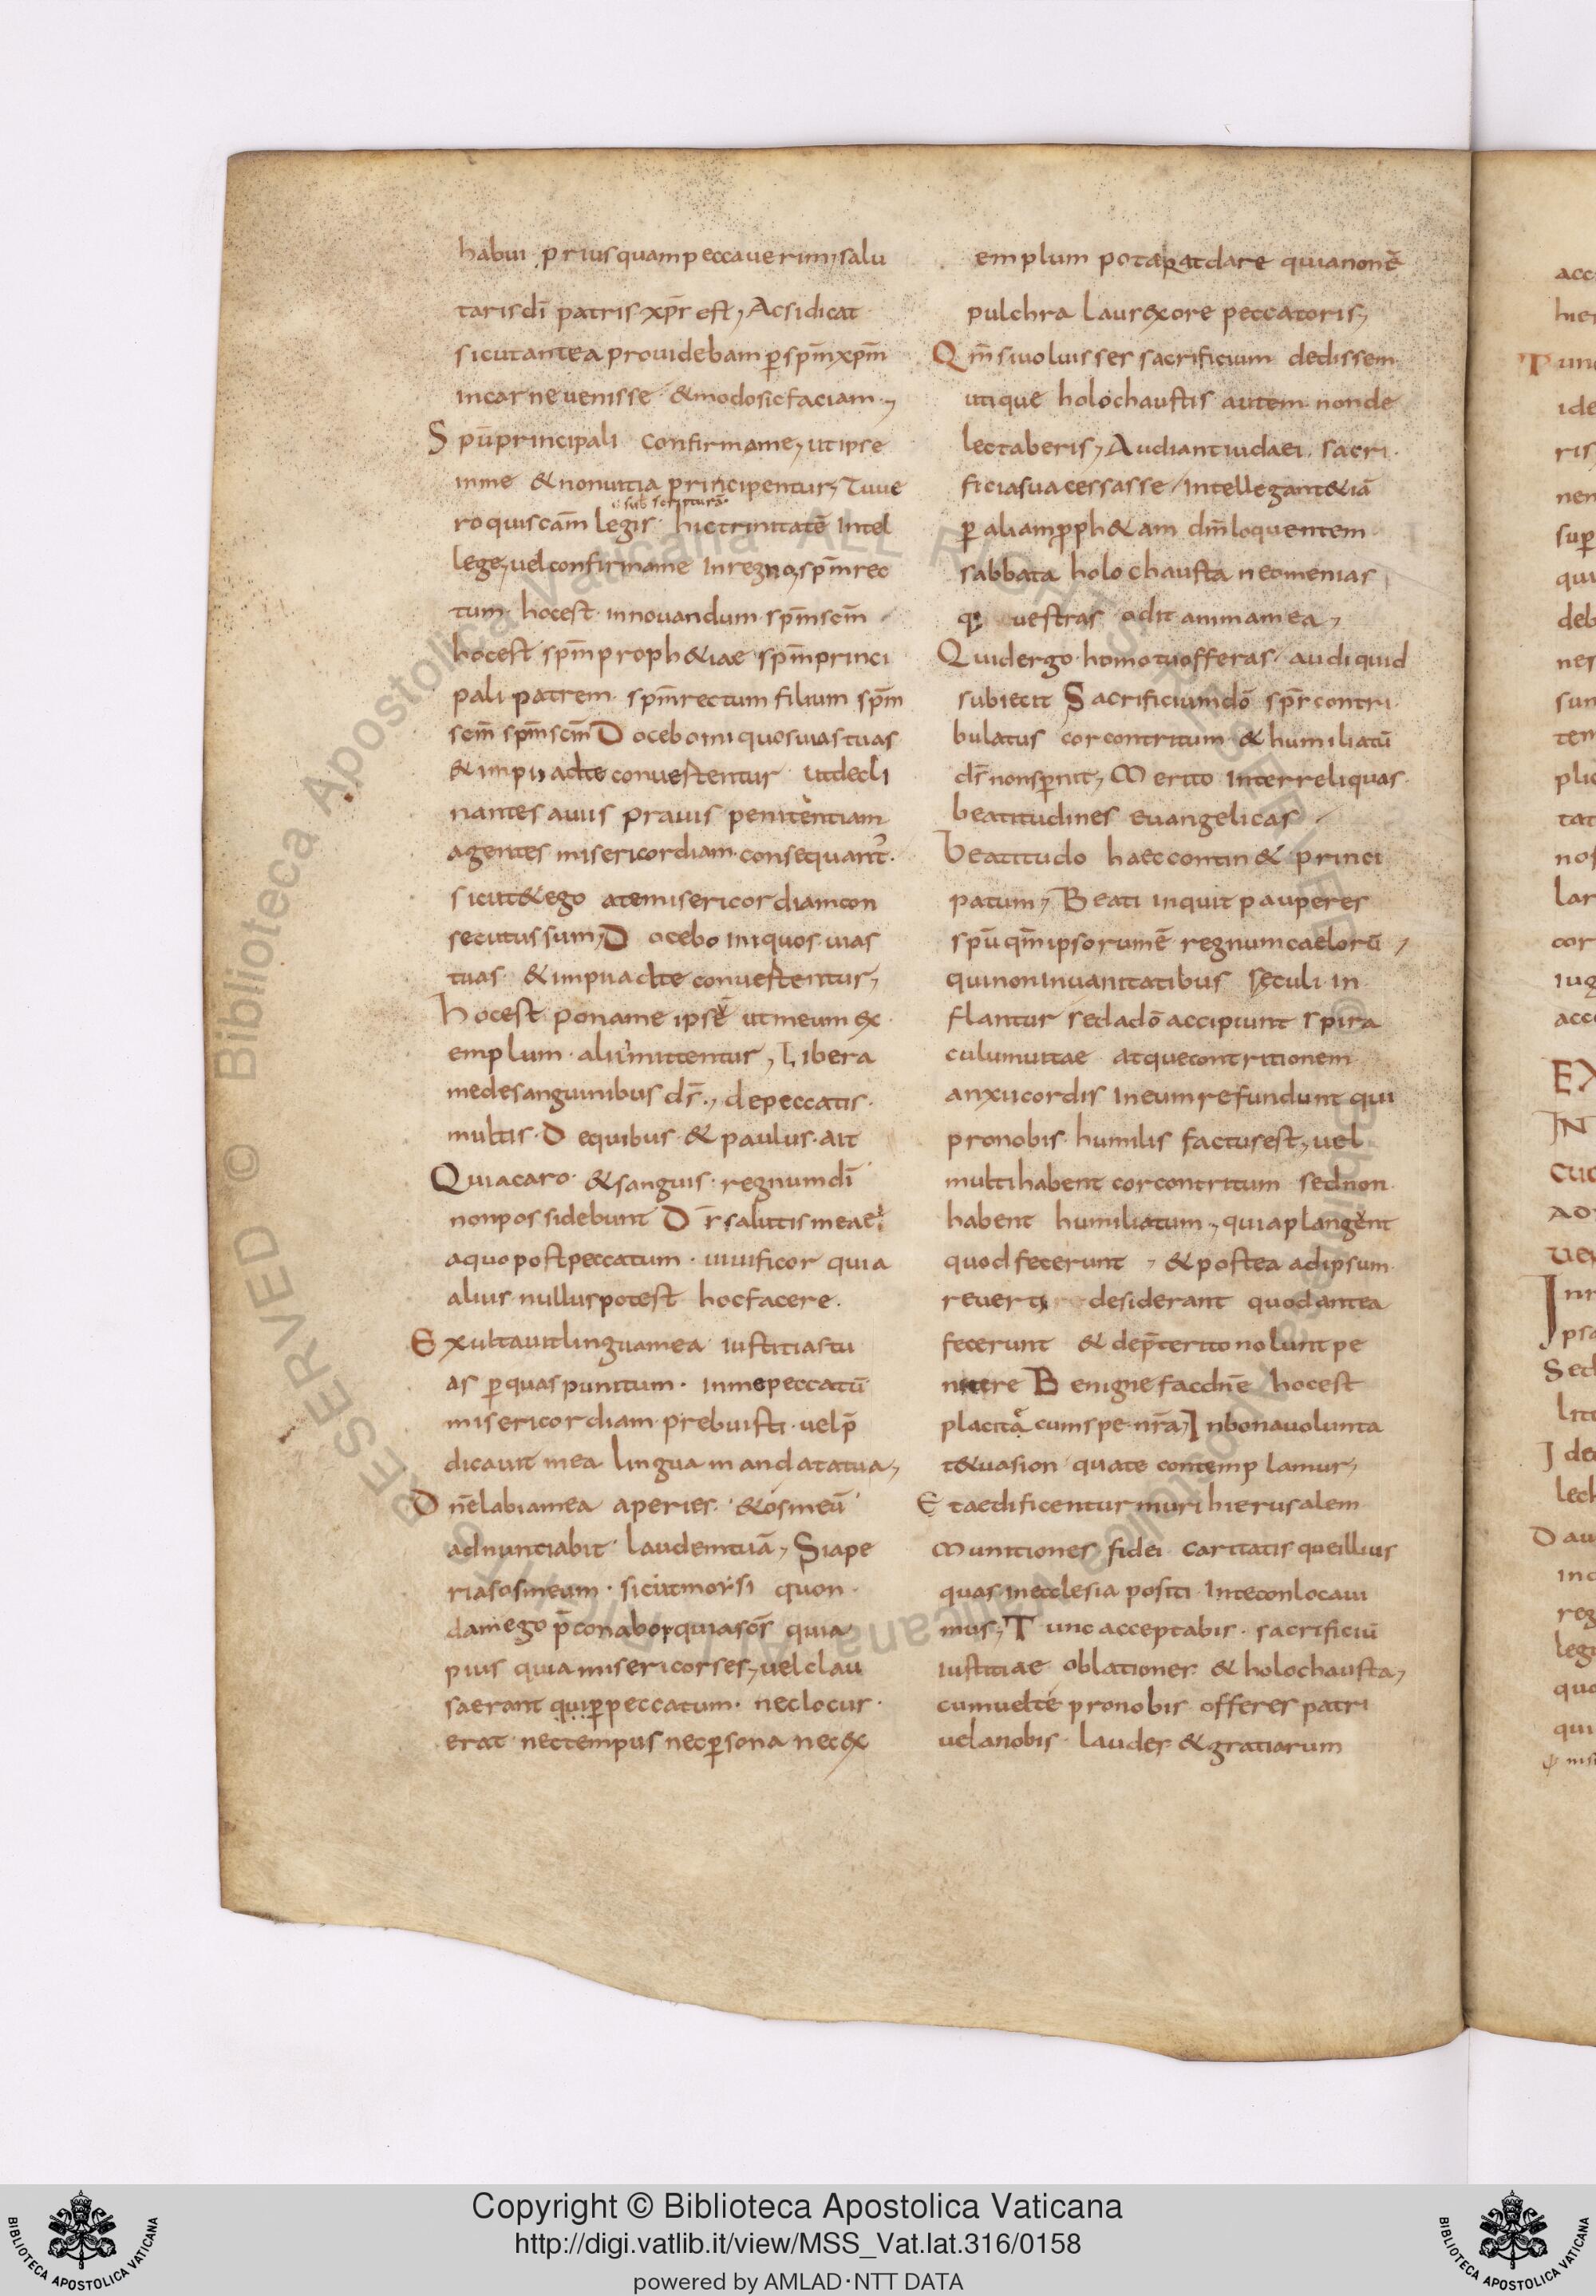 habui priusquam peccauerim, salu
taris dī patris xp̄s est, Ac si dicat
sicut antea prouidebam ꝑ sp̄m xp̄m
in carne uenisse & modo sic faciam,
Spū principali confirma me, ut ipse
in me & non uitia principentur, Tu ue
ī sub scripturā
ro qui scām legis hic trinitatē intel
lege, uel confirma me in regno, sp̄m rec
tum hoc est innouandum sp̄m scm̄
hoc est sp̄m proph&iae sp̄m princi
pali patrem sp̄m rectum filium sp̄m
scm̄ sp̄m scm̄ Docebo iniquos uias tuas
& impii ad te conuertentur ut decli
nantes a uiis prauis penitentiam
agentes misericordiam consequant̄
sicut & ego a te misericordiam con
secutus sum, Docebo iniquos uias
tuas & impii ad te conuertentur,
hoc est pone me ipsē ut meum ex
emplum alii imittentur, Libera
me de sanguinibus ds̄, de peccatis
multis De quibus & paulus ait
Quia caro & sanguis regnum dī
non possidebunt Ds̄ salutis meae
a quo post peccatum uiuificor quia
alius nullus potest hoc facere.
Exultauit lingua mea iustitias tu
as ꝑ quas punitum in me peccatū
misericordiam prebuisti uel p̄
dicauit mea lingua mandata tua,
Dn̄e labia mea aperies & os meū
adnuntiabit laudem tuā, Si ape
rias os meum sicut morsi quon
dam ego p̄conabor quia
pius quia misericors es, uel clau
sa erant qui ꝑ peccatum nec locus
erat nec tempus nec ꝑsona nec ex
emplum poterat dare quia non ē
pulchra laus ex ore peccatoris,
Qm̄ si uoluisses sacrificium dedissem
utique holochaustis autem non de
lectaberis, Audiant iudaei sacri
ficia sua cessasse intellegant & iā
ꝑ alium proph&am dm̄ loquentem
sabbata holochausta neomenias
q; uestras odit anima mea,
Quid ergo homo tu offeras audi quid
subiecit Sacrificium dō sp̄s contri
bulatus cor contritum & humiliatū
ds̄ non spernit, Merito inter reliquas
beatitudines euangelicas
beatitudo haec contin& princi
patum, Beati inquit pauperes
spū qm̄ ipsorum ē regnum caelorū,
qui non in uanitatibus sęculi in
flantur sed a dō accipiunt spira
culum uitae atque contritionem
anxii cordis in eum refundunt qui
pro nobis humilis factus est, uel
multi habent cor contritum sed non
habent humiliatum, quia plangent
quod fecerunt, & postea ad ipsum
reuerti desiderant quod antea
fecerunt & de p̄terito nolunt pe
nitere Benigne fac dn̄e hoc est
placita cum spe nrā, In bona uolunta
te & ua sion qua te contemplamur,
Et aedificentur muri hierusalem
Munitiones fidei caritatisque illius
quas in ecclesia positi in te conlocaui
mus, Tunc acceptabis sacrificiū
iustitiae oblationes & holochausta,
cum uel te pro nobis offeres patri
uel a nobis laudes & gratiarum
acc
hier
Tunc
ide
ris
nen
suꝑ
qui
deb
nes
sun
tem
plic
tat
nos
lar
cor
iug
acc
EX
IN
CUC
AD
UE
Inr
psa
Sed
litt
I de
lect
Dau
inc
reg
legi
quo
qui
Copyright © Biblioteca Apostolica Vaticana
http://digi.vatlib.it/view/MSS_Vat.lat.316/0158
powered by AMLAD·NTT DATA
BIBLIOTECA APOSTOLICA VATICANA
BIBLIOTECA APOSTOLICA VATICANA